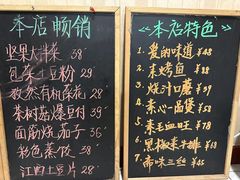 本店畅销
坚果大拌菜 38
包浆土豆粉 29
孜然有机菜花 28
茶树菇爆豆付 39
面筋烧茄子 36
彩色蒸饺 28
江西土豆片 28
本店特色
1、爱的味道 ¥48
2、素烤鱼 ¥88
3、烧汁口蘑 ¥58
4、素心一品煲 ¥58
5、素毛血旺 ¥78
6、黑椒素牛排 ¥
7、帝味三丝 ¥